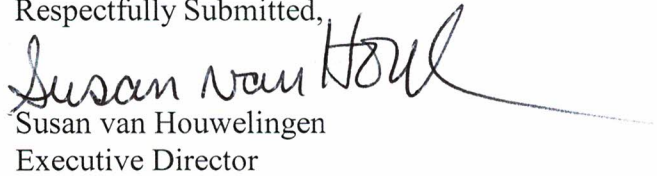 Respectfully Submitted,
Susan van Houl
Susan van Houwelingen
Executive Director